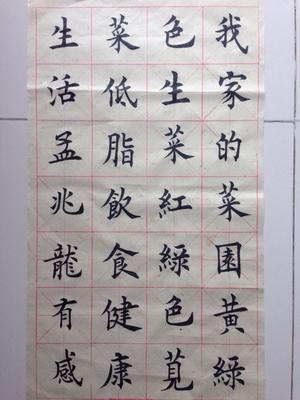 我家的菜園黃綠
色生菜紅綠色莧
菜低脂飲食健康
生活孟兆龍有感